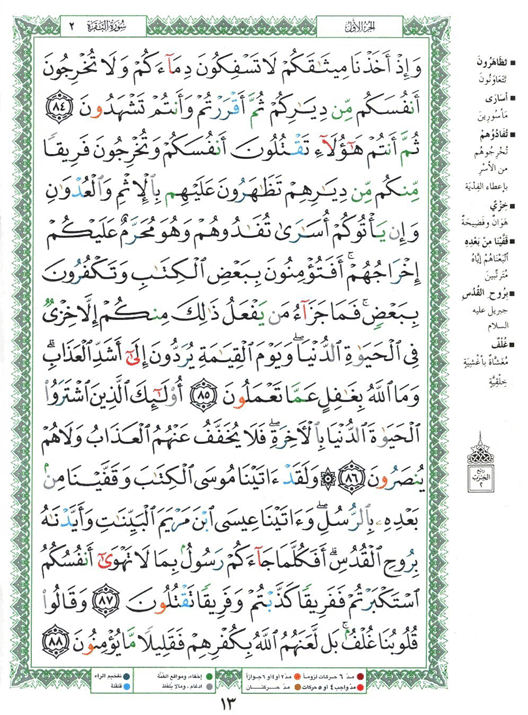 الجزء الأول
سورة البقرة ٢
وَإِذْ أَخَذْنَا مِيثَٰقَكُمْ لَا تَسْفِكُونَ دِمَآءَكُمْ وَلَا تُخْرِجُونَ
أَنفُسَكُم مِّن دِيَٰرِكُمْ ثُمَّ أَقْرَرْتُمْ وَأَنتُمْ تَشْهَدُونَ ٨٤
ثُمَّ أَنتُمْ هَٰٓؤُلَآءِ تَقْتُلُونَ أَنفُسَكُمْ وَتُخْرِجُونَ فَرِيقًا
مِّنكُم مِّن دِيَٰرِهِمْ تَظَٰهَرُونَ عَلَيْهِم بِٱلْإِثْمِ وَٱلْعُدْوَٰنِ
وَإِن يَأْتُوكُمْ أُسَٰرَىٰ تُفَٰدُوهُمْ وَهُوَ مُحَرَّمٌ عَلَيْكُمْ
إِخْرَاجُهُمْ ۚ أَفَتُؤْمِنُونَ بِبَعْضِ ٱلْكِتَٰبِ وَتَكْفُرُونَ
بِبَعْضٍ ۚ فَمَا جَزَآءُ مَن يَفْعَلُ ذَٰلِكَ مِنكُمْ إِلَّا خِزْىٌ
فِى ٱلْحَيَوٰةِ ٱلدُّنْيَا ۖ وَيَوْمَ ٱلْقِيَٰمَةِ يُرَدُّونَ إِلَىٰٓ أَشَدِّ ٱلْعَذَابِ ۗ
وَمَا ٱللَّهُ بِغَٰفِلٍ عَمَّا تَعْمَلُونَ ٨٥ أُو۟لَٰٓئِكَ ٱلَّذِينَ ٱشْتَرَوُا۟
ٱلْحَيَوٰةَ ٱلدُّنْيَا بِٱلْءَاخِرَةِ ۖ فَلَا يُخَفَّفُ عَنْهُمُ ٱلْعَذَابُ وَلَا هُمْ
يُنصَرُونَ ٨٦ ۞ وَلَقَدْ ءَاتَيْنَا مُوسَى ٱلْكِتَٰبَ وَقَفَّيْنَا مِنۢ
بَعْدِهِۦ بِٱلرُّسُلِ ۖ وَءَاتَيْنَا عِيسَى ٱبْنَ مَرْيَمَ ٱلْبَيِّنَٰتِ وَأَيَّدْنَٰهُ
بِرُوحِ ٱلْقُدُسِ ۗ أَفَكُلَّمَا جَآءَكُمْ رَسُولٌۢ بِمَا لَا تَهْوَىٰٓ أَنفُسُكُمُ
ٱسْتَكْبَرْتُمْ فَفَرِيقًا كَذَّبْتُمْ وَفَرِيقًا تَقْتُلُونَ ٨٧ وَقَالُوا۟
قُلُوبُنَا غُلْفٌۢ ۚ بَل لَّعَنَهُمُ ٱللَّهُ بِكُفْرِهِمْ فَقَلِيلًا مَّا يُؤْمِنُونَ ٨٨
تظاهرون
تتعاونون
أسارى
مأسورين
تفادوهم
تخرجوهم
من الأسر
بإعطاء الفدية
خزي
هوان وفضيحة
قفينا من بعده
أتبعناهم إياه
مترتبين
بروح القدس
جبريل عليه
السلام
غلف
مغشاة بأغشية
خلقية
ربع
الحزب
٢
مد ٦ حركات لزوماً
مد ٢ أو ٤ أو ٦ جوازاً
مد واجب ٤ أو ٥ حركات
مد حركتان
إخفاء، ومواقع الغنة
إدغام، وما لا يلفظ
تفخيم الراء
قلقلة
١٣